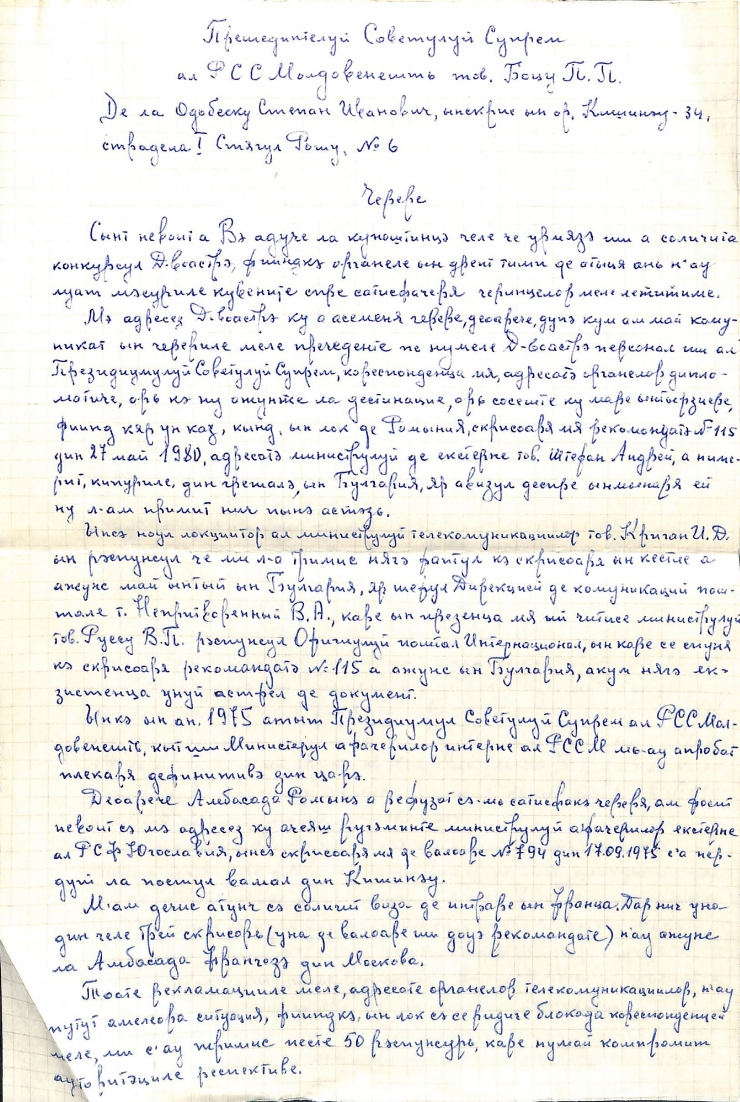 Прешединтелуй Советулуй Супрем
ал РСС Молдовенешть тов. Боцу П.П.
Де ла Одобеску Степан Иванович, ынскрис ын ор. Кишинэу-34,
страдела I Стягул Рошу, № 6
Черере
Сынт невоит а Вэ адуче ла куноштинцэ челе че урмязэ ши а соличита
конкурсул Д-воастрэ, фииндкэ органеле ын дрепт тимп де атыця ань н'ау
луат мэсуриле кувените спре сатисфачеря черинцелор меле леӂитиме.
Мэ адресез Д-воастрэ ку о асеменя черере, деоарече, дупэ кум ам май кому-
никат ын черериле меле прече­денте пе нумеле Д-воастрэ персонал ши ал
Президиумулуй Советулуй Супрем, кореспонденца мя, адресатэ органелор дипло-
матиче, орь кэ ну ажунже ла дестинацие, орь сосеште ку маре ынтырзиере,
фиинд кяр ун каз, кынд, ын лок де Ромыния, скрисоаря мя рекомандатэ №115
дин 27 май 1980, адресатэ министрулуй де екстерне тов. Штефан Андрей, а ниме-
рит, кипуриле, дин грешалэ, ын Булгария, яр авизул деспре ынмынаря ей
ну л-ам примит нич пынэ астэзь.
Ынсэ ноул локциитор ал министрулуй телекомуникациилор тов. Криган И.Д.
ын рэспунсул че ми л-а тримис нягэ фаптул кэ скрисоаря ын кестие а
ажунс май ынтый ын Булгария, яр шефул Дирекцией де комуникаций пош-
тале т. Непритворенный В.А., каре ын презенца мя ый читисе министрулуй
тов. Руссу В.П. рэспунсул Офичиулуй поштал Интернационал, ын каре се спуня
кэ скрисоаря рекомандатэ №115 а ажунс ын Булгария, акум нягэ ек-
зистенца унуй астфел де документ.
Ынкэ ын ан. 1975 атыт Президиумул Советулуй Супрем ал РСС Мол-
довенешть, кыт ши Министерул афачерилор интерне ал РССМ мь-ау апробат
плекаря дефинитивэ дин царэ.
Деоарече Амбасада Ромынэ а рефузат сэ-мь сатисфакэ черeря, ам фост
невоит сэ мэ адресез ку ачеяш ругэминте министрулуй афачерилор екстерне
ал РСФ Югославия, ынсэ скрисоаря мя де валоаре №794 дин 17.09.1975 с'а пер-
дут ла постул вамал дин Кишинэу.
М-ам дечис атунч сэ соличит виза де интраре ын Франца. Дар нич уна
дин челе трей скрисорь (уна де валоаре ши доуэ рекомандате) н'ау ажунс
ла Амбасада Франчезэ дин Москова.
Тоате рекламацииле меле, адресате органелор телекомуникациилор, н'ау
путут амелиора ситуация, фииндкэ, ын лок сэ се ридиче блокада кореспонденцей
меле, ми с'ау тримис песте 50 рэспунсурь, каре нумай компромит
ауторитэциле респективе.